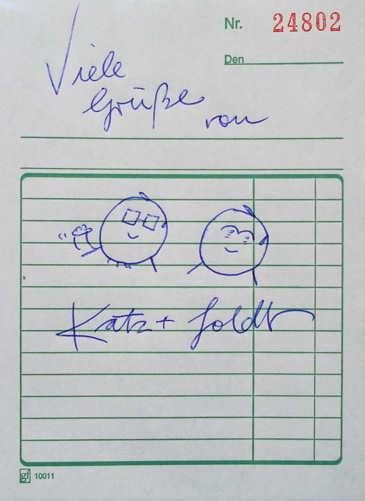 Nr. 24802
Den
Viele
Grüße
von
Katz + Goldt
gf 10011